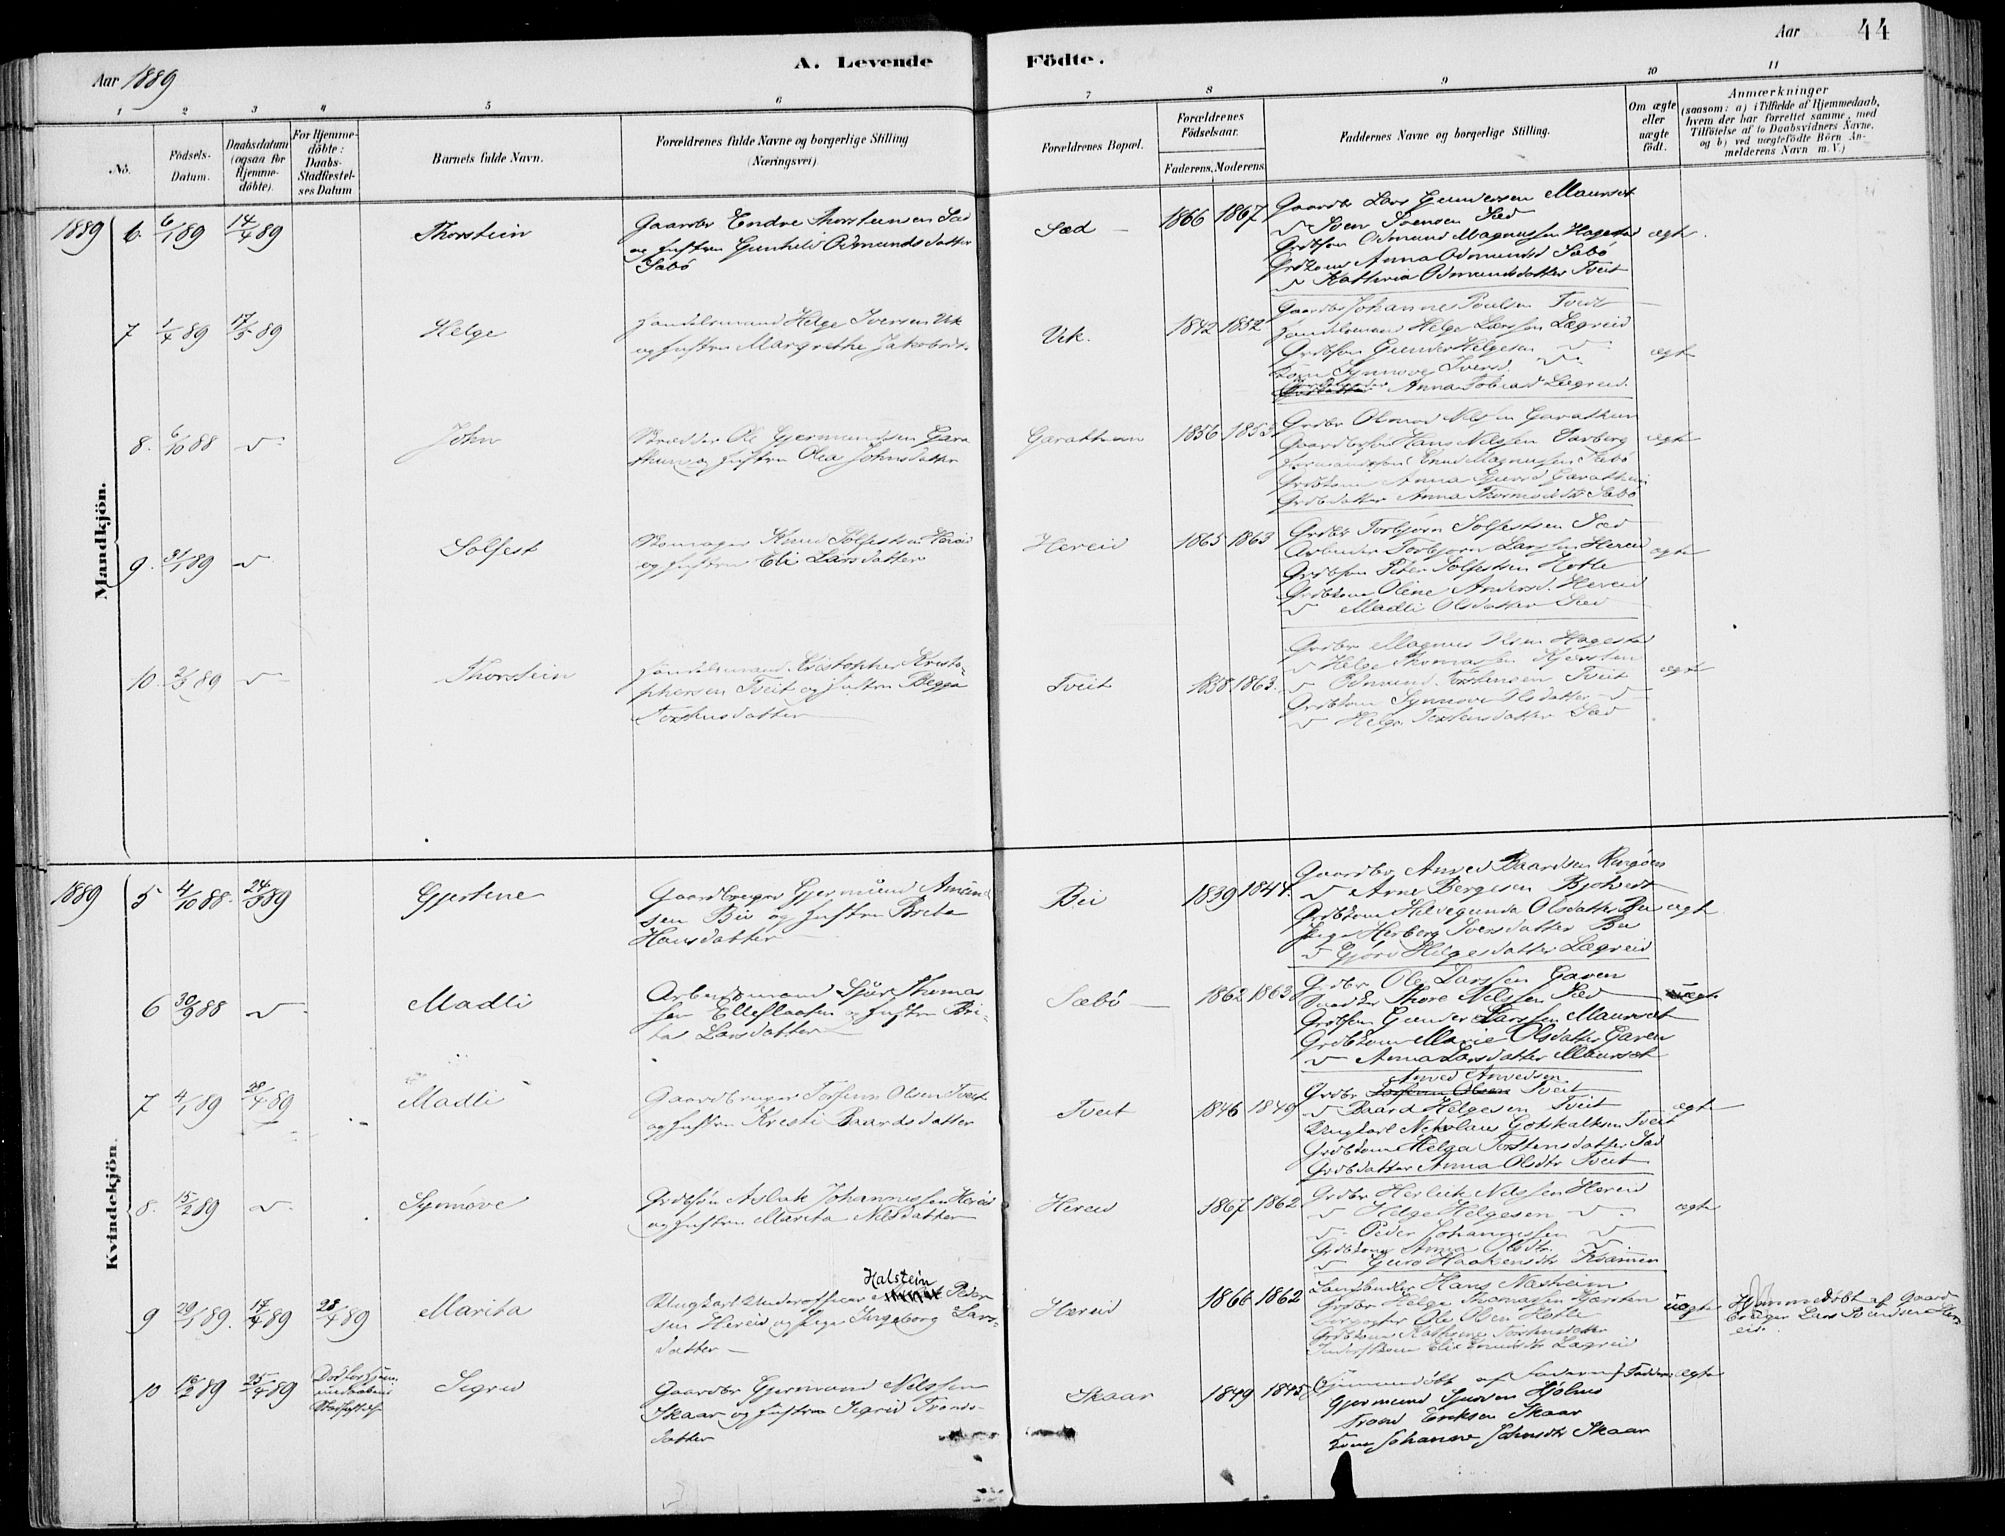 Aar 1889
A. Levende
Födte.
Aar
44
1 2 3 4 5 6 7 8 9 10 11
No.
Födsels-Datum.
Daabsdatum (ogsaa for Hjemme-döbte).
For Hjemme-döbte: Daabs-Stadfæstelses Datum
Barnets fulde Navn.
Forældrenes fulde Navne og borgerlige Stilling (Næringsvei).
Forældrenes Bopæl.
Forældrenes Födselsaar.
Faderens. Moderens.
Faddernes Navne og borgerlige Stilling.
Om ægte eller uægte födt.
Anmærkninger
(saasom: a) i Tilfælde af Hjemmedaab, hvem der har forrettet samme, med Tilföielse af to Daabsvidners Navne, og b) ved uægtefödte Börn Anmelderens Navn m. V.)
Mandkjön.
1889 6 6/1 89 14/4 89
Thorstein
Gaardbr Endre Thorsteinsen Sæd
og Hustru Gunhild Odmundsdatter
Sæbö
Sæd
1866 1867
Gaardbr Lars Gundersen Maurset
Sven Svensen Sæd
Grdbsøn Odmund Magnussen Hagestad
Grdbkone Anna Odmundsd Sæbö
Kathrina Odmundsdatter Tveit
ægte
7 1/4 89 17/3 89
Helge
Handelsmand Helge Iversen Vik
og Hustru Margrethe Jakobsdt.
Vik.
1842 1852
Gaardbr Johannes Poulsen Tveit
Handelsmand Helge Larssen Lægreid
Grdbsøn Gunder Helgesen
Kone Synnove Iversd.
Anna Tobiasd Lægreid.
ægte
8. 6/10 88
John
Ole Gjermundsen Gara
thun og Hustru Olea Johnsdatter
Garatthun
1856 1853
Grdbr Olmod Nilssen Garathun
Gaardbrsøn Hans Nilssen Varberg
Knud Magnussen Sæbö
Grdbkone Anna Garathun
Grdbdatter Anna Thormodsdtr Sæbö
ægte
9. 31/1 89
Solfest
Skomager Knud Solfestsen Hereid
og Hustru Eli Larsdatter
Hereid
1865 1863
Grdbr Torbjørn Solfestsen Sæd
Arbeider Torbjørn Larssen Hereid
Grdbsøn Peter Solfestsen Hotle
Grdbkone Oline Andersd. Hereid
Madli Olsdatter Sæd
ægte
10. 2/3 89
Thorstein
Handelsmand Kristopher Kristo-
phersen Tveit og Hustru Begga
Torstensdatter
Tveit
1838 1863.
Grdbr Magnus Olsen Hagestad
Helge Thomassen Kjersten
Odmund Torstensen Tveit
Grdbkone Synnove Olsdatter
Helga Torstensdatter Sæd
ægte
Kvindekjön.
1889 5 4/10 88. 24/3 89
Gjertine
Gaardbruger Gjermund Amun-
sen Bu og Hustru Brita
Hansdatter
Bu
1839 1844.
Gaardbr Anved Baardsen Ringøen
Arne Bergesen Bjotveit
Grdbkone Hildegunda Olsdatter Bu
Pige Herborg Svensdatter Bu
Gjøro Helgesdatter Lægreid
ægte
6 30/9 88
Madli
Arbeidsmand Sjur Thomas
sen Elleflaaten og Hustru Bri-
ta Larsdatter
Sæbö
1862 1863
Grdbr Ole Larssen Garen
Gaardbr Thore Nilssen Sæd
Grdbsøn Gunder Larssen Maurset
Grdbkone Marie Olsdatter Garen
Anna Larsdatter Maurset
ægte
7 4/1 89 28/4 89
Madli
Gaardbruger Torfinn Olsen Tveit
og Hustru Kristi Baardsdatter
Tveit
1846 1849
Anved Anvedsen
Grdbr Torfinn Olsen Tveit
Baard Helgesen Tveit
Ungkarl Nikolaus Gotskalksen Tveit
Grdbkone Helga Torstensdatter Sæd
Grdbdatter Anna Olsdtr Tveit
ægte
8. 15/2 89
Synnøve
Grdbsøn Aslak Johannessen Hereid
og Hustru Marita Nilsdatter
Hereid
1867 1862
Grdbr Herleik Nilssen Hereid
Helge Helgesen
Peder Johannessen
Grdbkone Anna Olsdtr.
Guro Haakensdtr
ægte
9 29/1 89. 17/4 89 28/4 89
Marita
Halstein
Ungkarl Underofficer Peder
sen Hereid og Pige Ingeborg Lars-
datter
Hereid
1866 1862
Landhandler Hans Nasheim
Grdbr Helge Thomassen Kjersten
Ole Olsen Hotle
Grdbkone Kathrine Torstensdatter
Lægreid
uægte
Hjemmedöbt af Gaard
bruger Lars Svendsen Her-
eid.
10 18/2 89 25/4 89
Død før Hjem-
medaabens
Stadfæstelse
Sigrid
Gaardbr Gjermund Nilssen
Skaar og Hustru Sigrid Tronds-
datter
Skaar
1849 1845
Hjemmedöbt af Faderen / Faddere:
Gjermund Sjursen Hjolmo
Trond Eriksen Skaar
Kone Johanne Johnsdtr Skaar
ægte